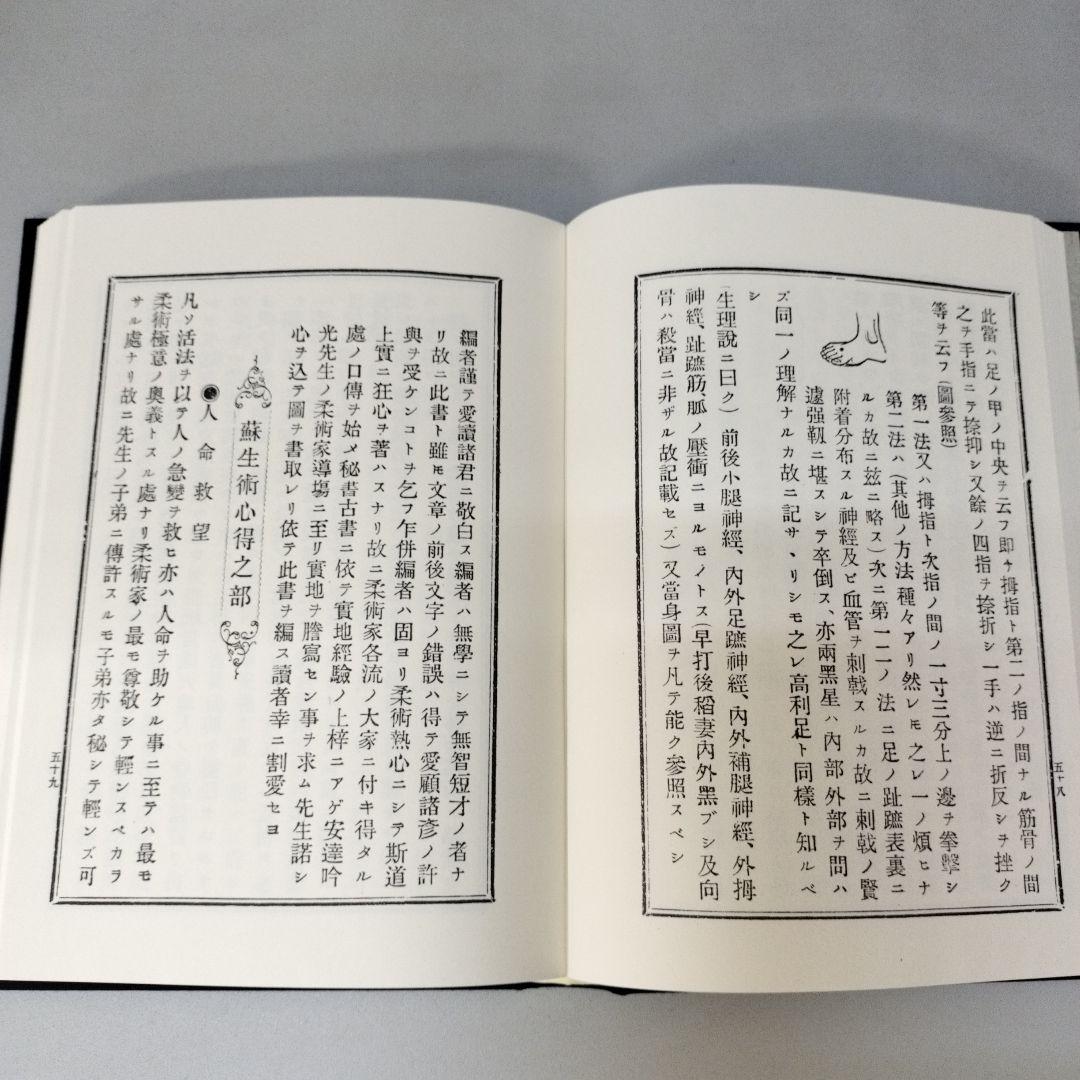 此當ハ足ノ甲ノ中央ヲ云フ即チ拇指ト第二ノ指ノ間ナル筋骨ノ間
之ヲ手指ニテ捺抑シ又餘ノ四指ヲ捺折シ一手ハ逆ニ折反シヲ挫ク
等ヲ云フ(圖參照)
第一法又ハ拇指ト次指ノ間ノ一寸三分上ノ邊ヲ拳擊シ
第二法ハ(其他ノ方法種々アリ然レㇳモ之レ一ノ煩ヒナ
ルカ故ニ玆ニ略ス)次ニ第一二ノ法ニ足ノ趾蹠表裏ニ
附着分布スル神經及ビ血管ヲ刺戟スルカ故ニ刺戟ノ賢
遽强靱ニ堪スシテ卒倒ス、亦兩黑星ハ內部外部ヲ問ハ
ズ同一ノ理解ナルカ故ニ記サヽリシモ之レ高利足ト同樣ト知ルベ
シ
(生理說ニ曰ク) 前後小腿神經、內外足蹠神經、內外補腿神經、外拇
神經、趾蹠筋、胍ノ壓衝ニヨルモノトス(早打後稻妻內外黑ブシ及向
骨ハ殺當ニ非ザル故記載セズ)又當身圖ヲ凡テ能ク參照スベシ
五十八
編者謹テ愛讀諸君ニ敬白ス編者ハ無學ニシテ無智短才ノ者ナ
リ故ニ此書ト雖ㇳモ文章ノ前後文字ノ錯誤ハ得テ愛顧諸彥ノ許
與ヲ受ケンコトヲ乞フ乍併編者ハ固ヨリ柔術熱心ニシテ斯道
上實ニ狂心ヲ著ハスナリ故ニ柔術家各流ノ大家ニ付キ得タル
處ノ口傳ヲ始メ秘書古書ニ依テ實地經驗ノ上梓ニアゲ安達吟
光先生ノ柔術家導場ニ至リ實地ヲ謄寫セン事ヲ求ム先生諾シ
心ヲ込テ圖ヲ書取レリ依テ此書ヲ編ス讀者幸ニ割愛セヨ
蘇生術心得之部
●人命救望
凡ソ活法ヲ以テ人ノ急變ヲ救ヒ亦ハ人命ヲ助ケル事ニ至テハ最モ
柔術極意ノ奧義トスル處ナリ柔術家ノ最モ尊敬シテ輕ンスベカラ
サル處ナリ故ニ先生ノ子弟ニ傳許スルモ子弟亦タ秘シテ輕ンズ可
五十九